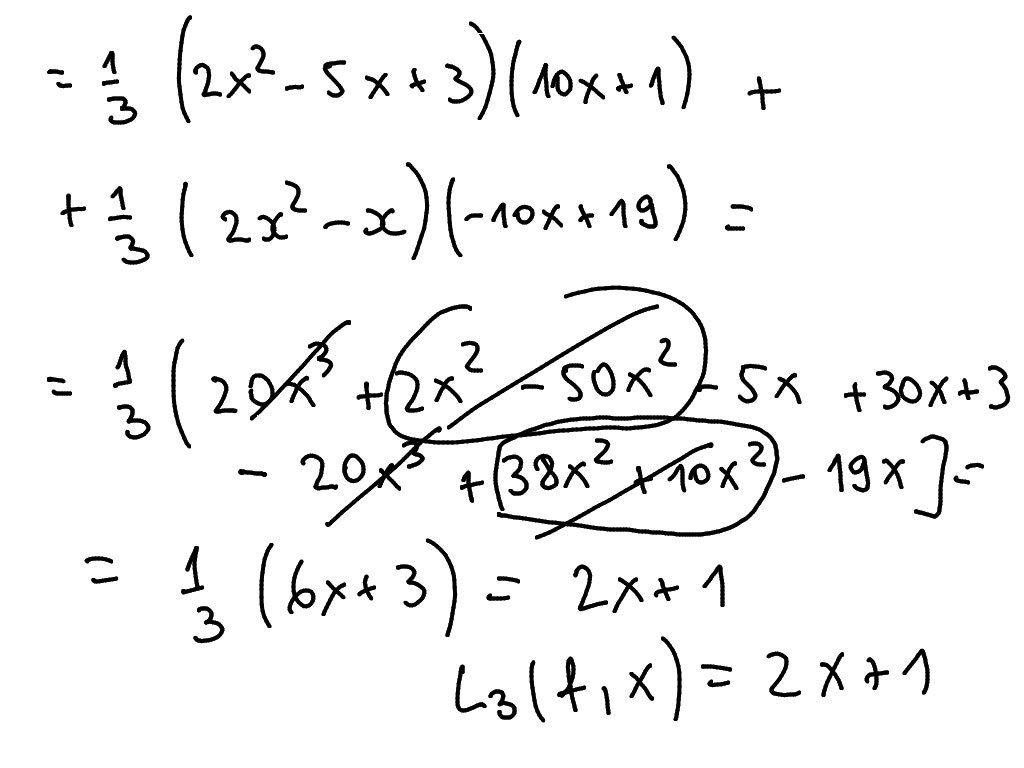 = 1/3 (2x² - 5x + 3)(10x + 1) +
+ 1/3 (2x² - x)(-10x + 19) =
= 1/3 (20x³ + 2x² - 50x² - 5x + 30x + 3
- 20x³ + 38x² + 10x² - 19x] =
= 1/3 (6x + 3) = 2x + 1
L₃(f, x) = 2x + 1